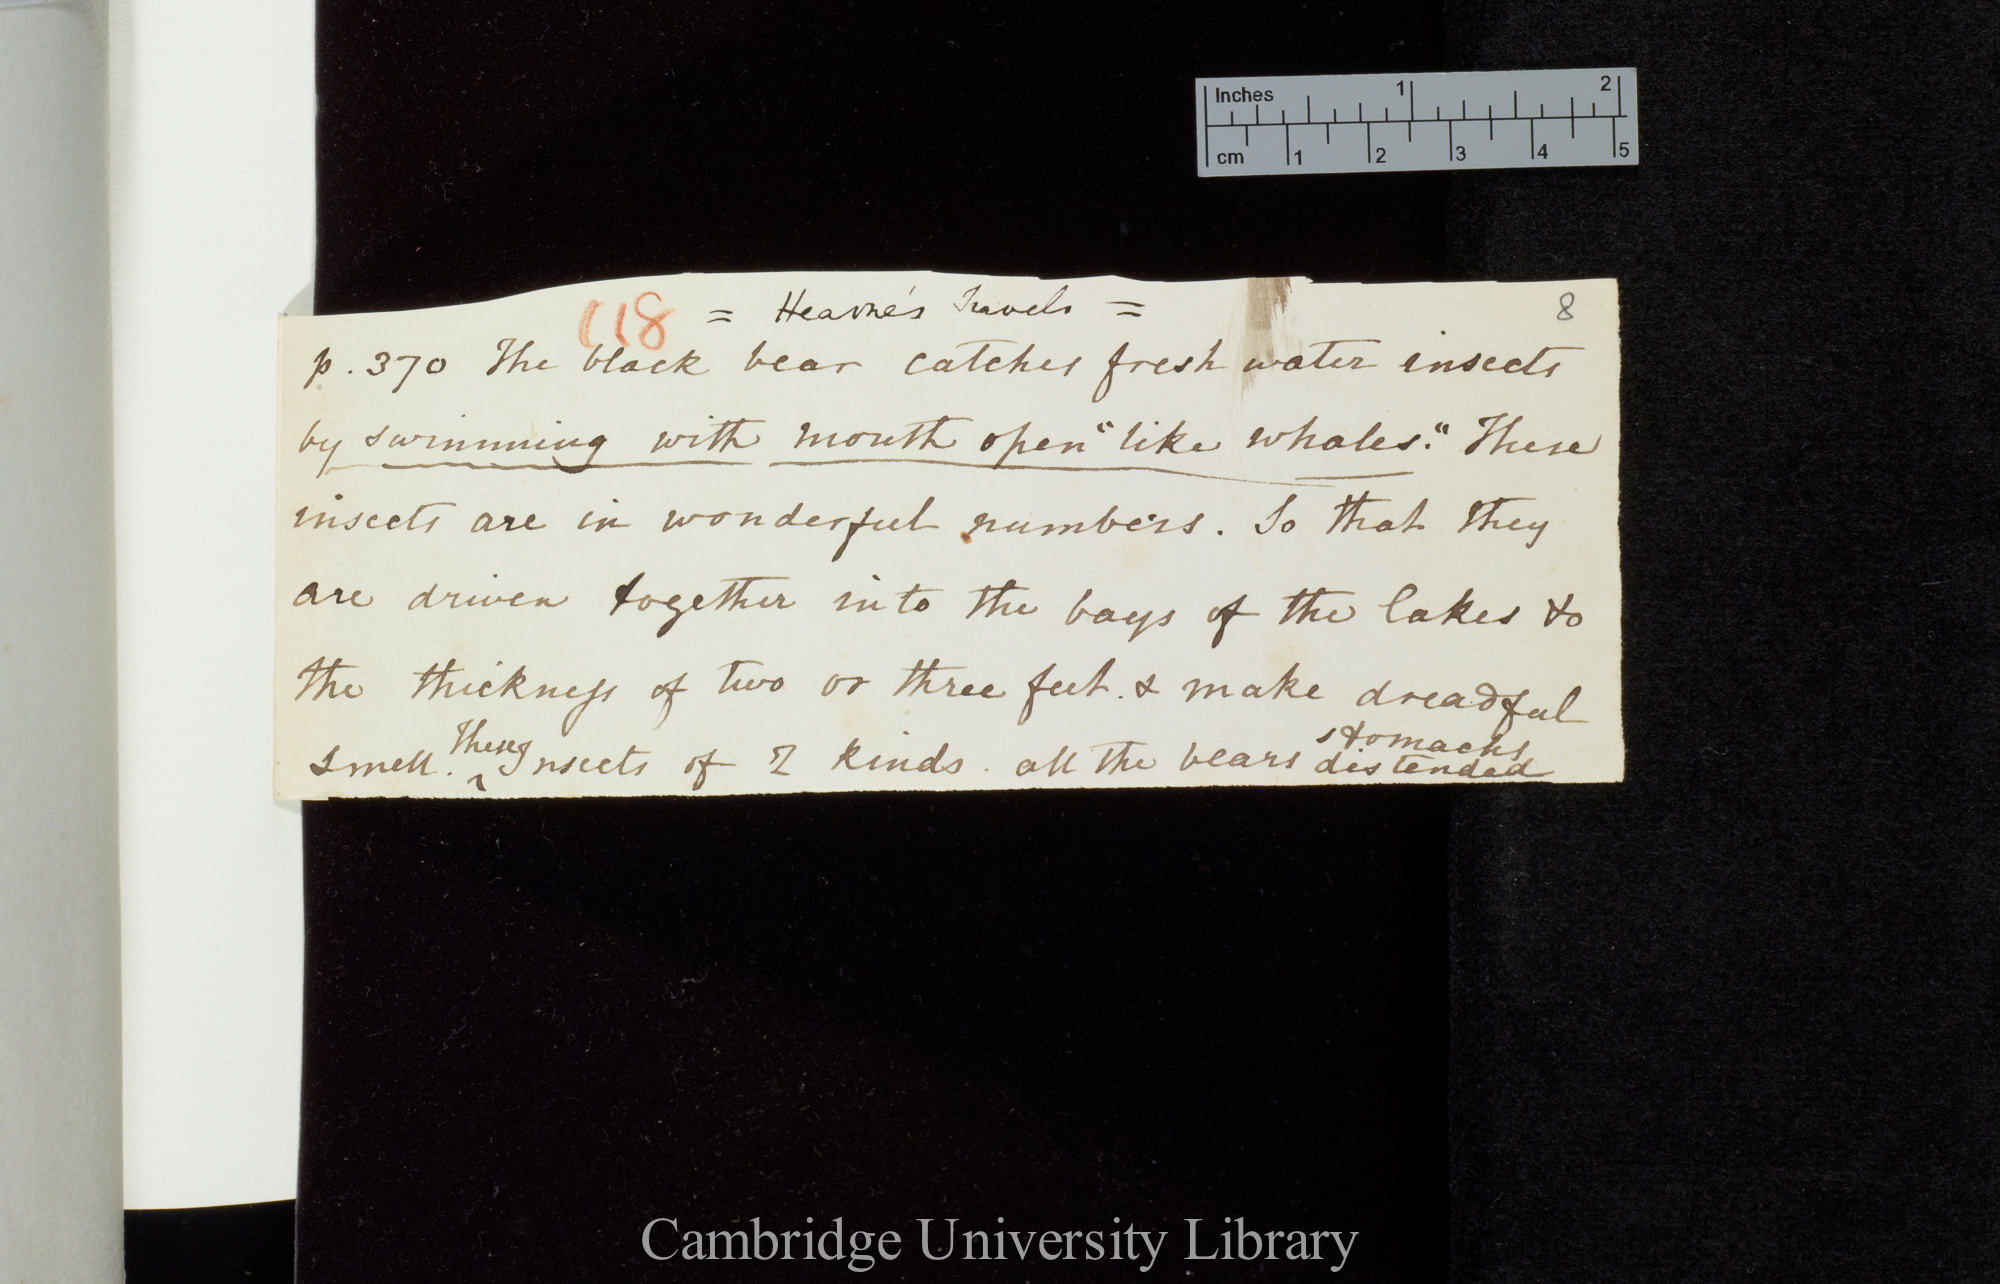 Inches 1 2
cm 1 2 3 4 5
(18 = Hearne's Travels = 8
p. 370 The black bear catches fresh water insects
by swimming with mouth open "like whales." These
insects are in wonderful numbers. So that they
are driven together into the bays of the lakes to
the thickness of two or three feet. & make dreadful
smell. These Insects of 2 kinds. all the bears stomachs
distended
Cambridge University Library